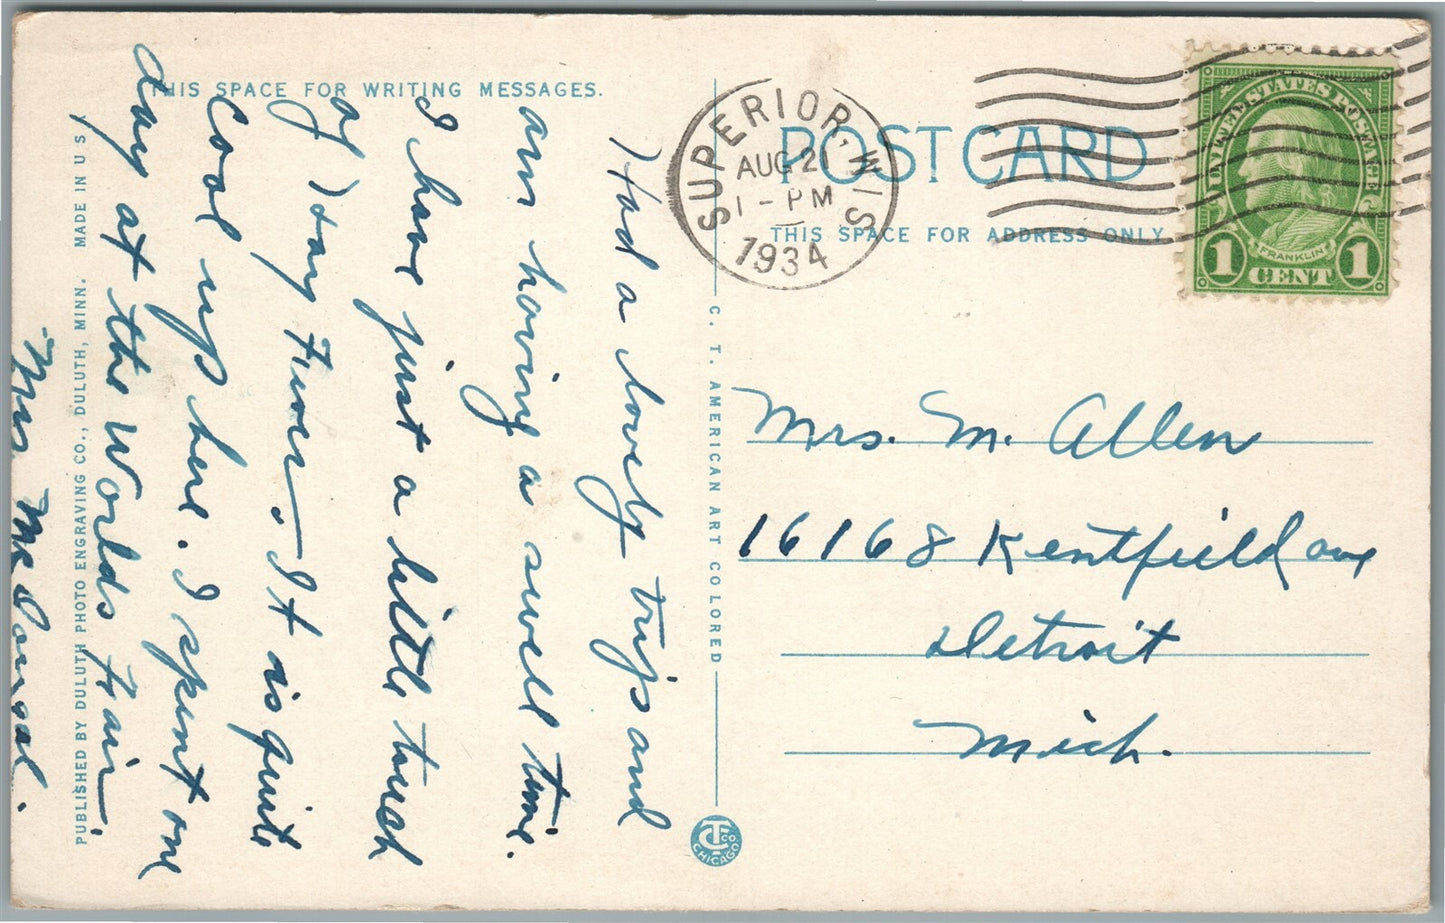 THIS SPACE FOR WRITING MESSAGES.
Had a lovely trip and
am having a swell time.
I have just a little touch
of Hay Fever. It is quite
Cool up here. I spent one
day at the Worlds Fair.
Mrs
PUBLISHED BY DULUTH PHOTO ENGRAVING CO., DULUTH, MINN. MADE IN U S
C. T. AMERICAN ART COLORED
CT CO. CHICAGO
SUPERIOR, WIS
AUG 21
1 - PM
1934
POST CARD
THIS SPACE FOR ADDRESS ONLY
UNITED STATES POSTAGE
FRANKLIN
1 CENT 1
Mrs. M. Allen
16168 Kentfield ave
Detroit
Mich.